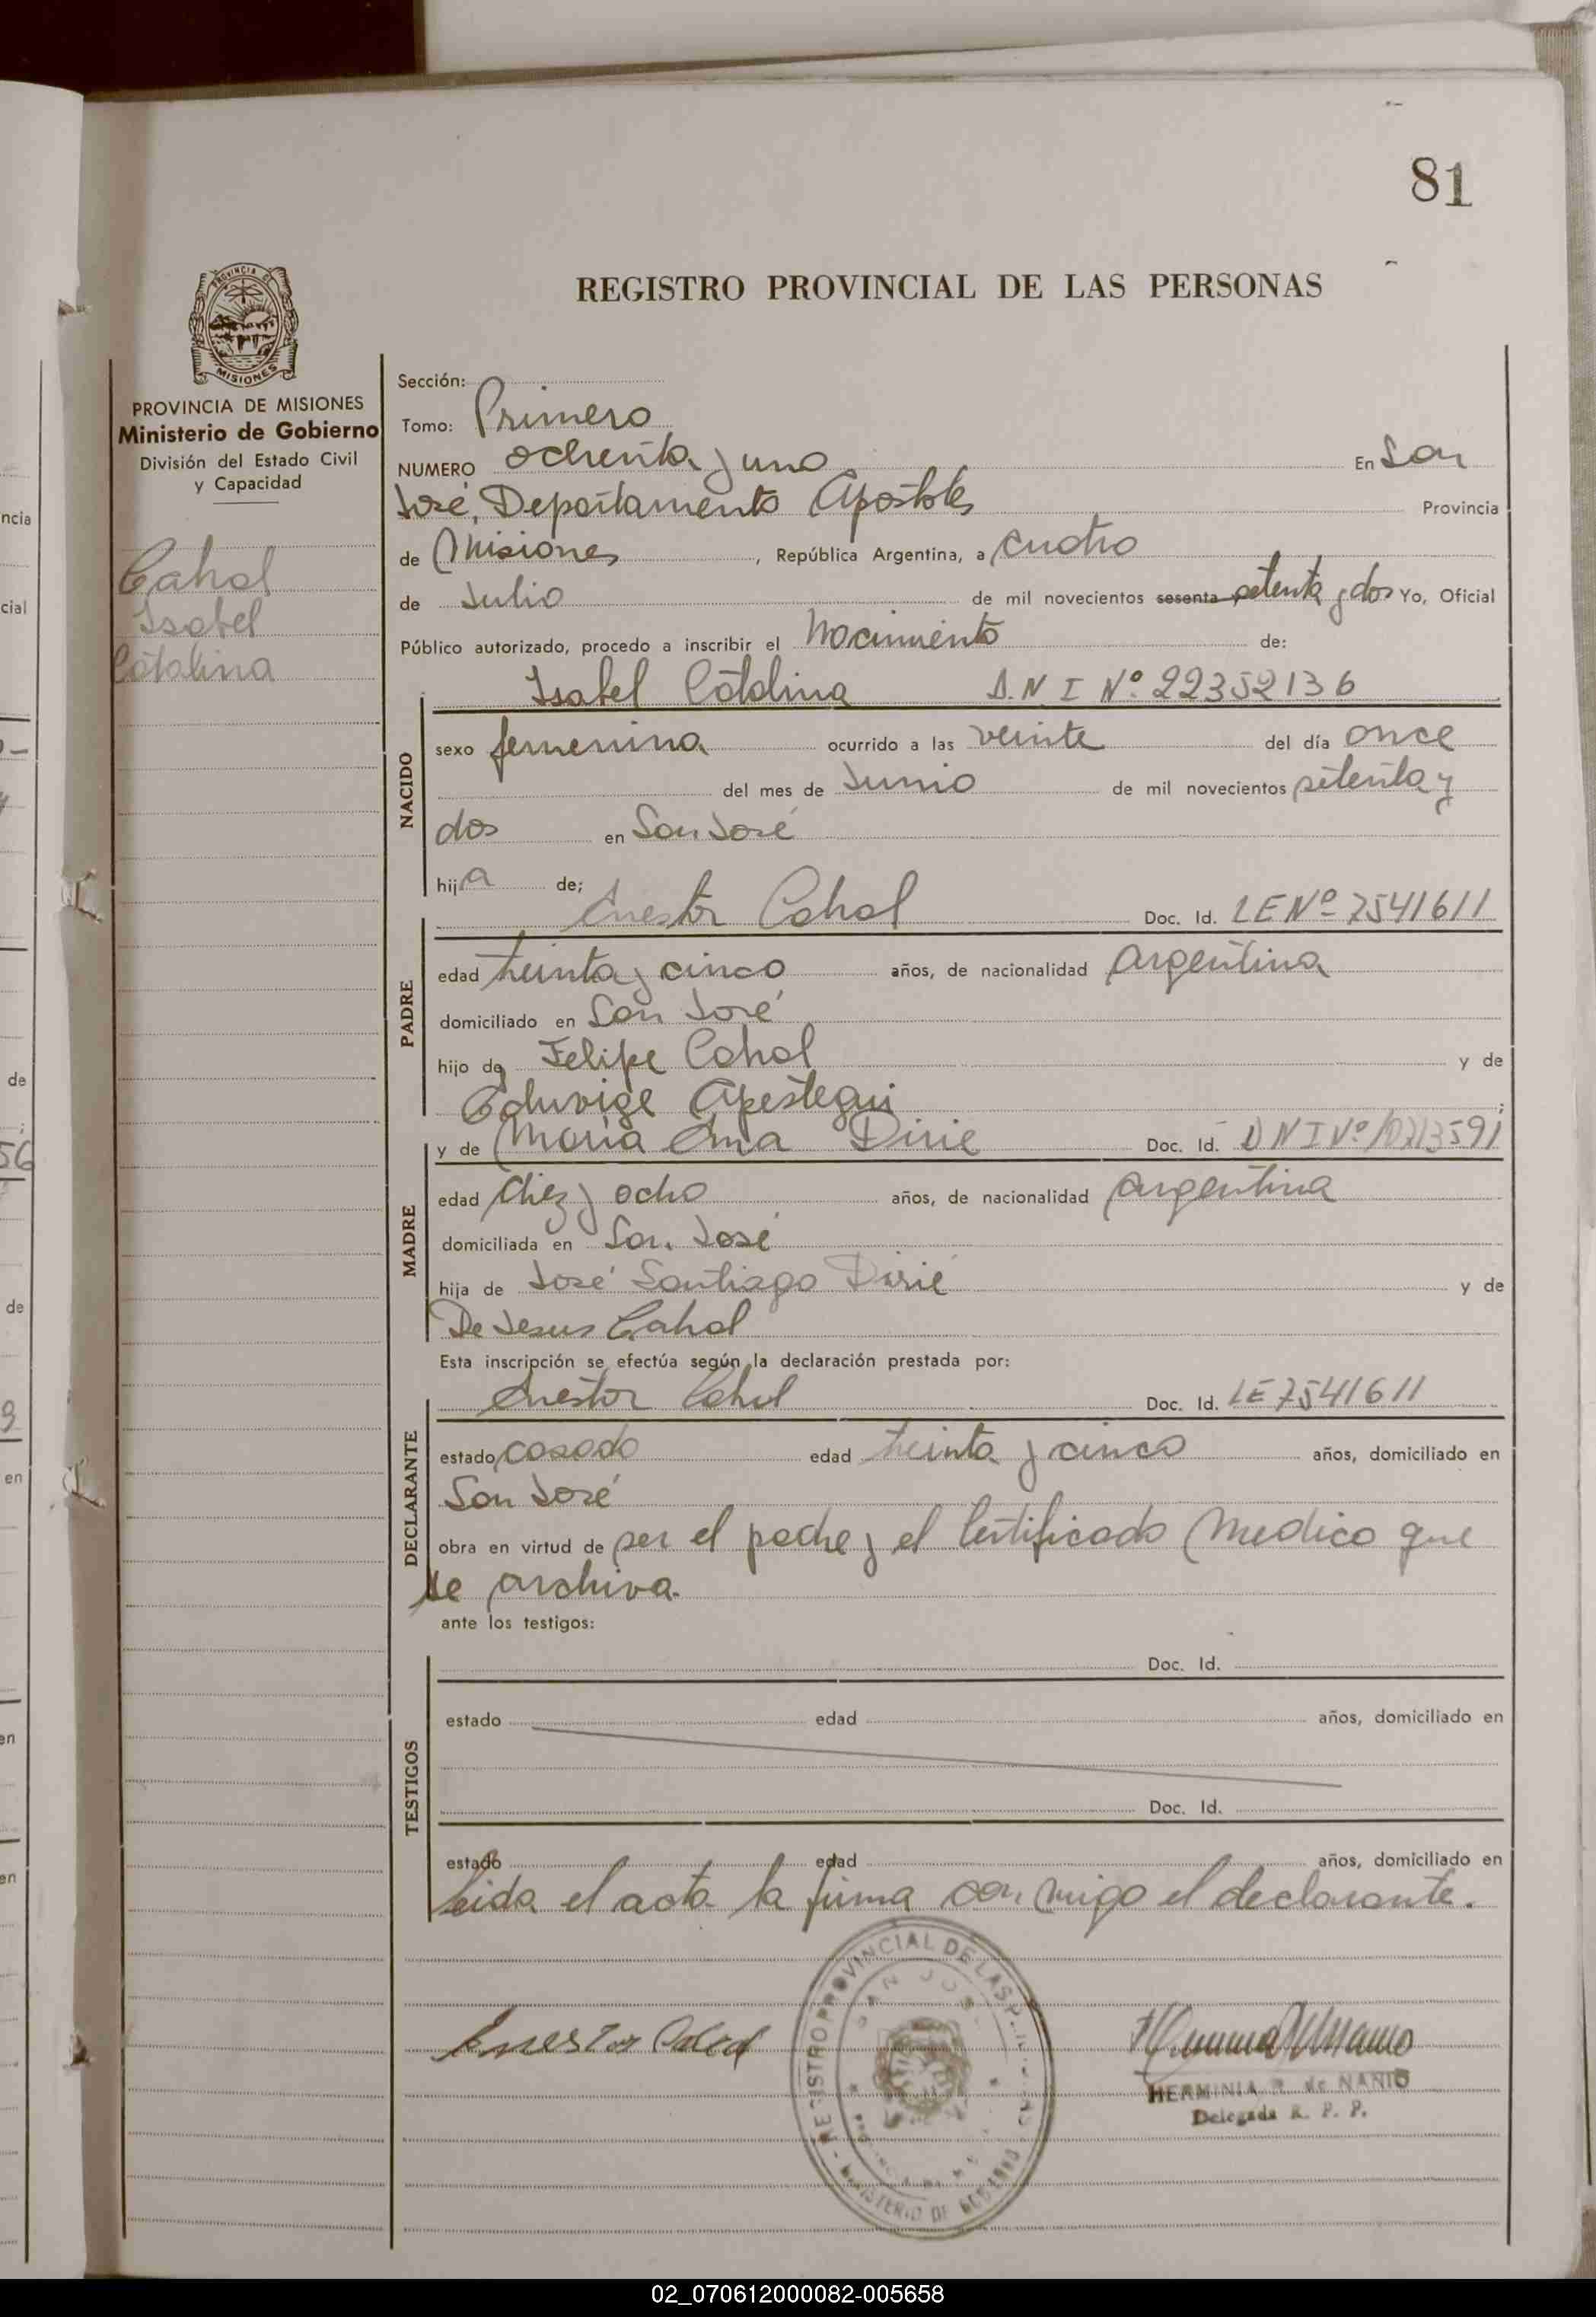 81
REGISTRO PROVINCIAL DE LAS PERSONAS
PROVINCIA DE MISIONES
Ministerio de Gobierno
División del Estado Civil
y Capacidad
Cahol
Isabel
Catalina
Sección:
Tomo: Primero
NUMERO ochenta y uno En San
José, Departamento Apóstoles Provincia
de Misiones, República Argentina, a cuatro
de Julio de mil novecientos sesenta setenta y dos Yo, Oficial
Público autorizado, procedo a inscribir el Nacimiento de:
Isabel Catalina D.N I Nº 22352136
NACIDO
sexo femenina ocurrido a las veinte del día once
del mes de Junio de mil novecientos setenta y
dos en San José
hija de;
Cahol Doc. Id. LE Nº 7541611
PADRE
edad treinta y cinco años, de nacionalidad Argentina
domiciliado en San José
hijo de Felipe Cahol y de
Eduvige Apestegui;
y de María Ema Dirie Doc. Id. DNI Nº 10213591
MADRE
edad diez y ocho años, de nacionalidad Argentina
domiciliada en San José
hija de José Santiago Dirié y de
De Jesus Cahol
Esta inscripción se efectúa según la declaración prestada por:
Cahol Doc. Id. LE 7541611
DECLARANTE
estado casado edad treinta y cinco años, domiciliado en
San José
obra en virtud de ser el padre y el Certificado Medico que
se archiva.
ante los testigos:
TESTIGOS
Doc. Id.
estado edad años, domiciliado en
Doc. Id.
estado edad años, domiciliado en
Leida el acta la firma con migo el declarante.
REGISTRO PROVINCIAL DE LAS
SAN JOSE
MINISTERIO DE GOBIERNO
HERMINIA de NANIO
Delegada R. P. P.
02_070612000082-005658